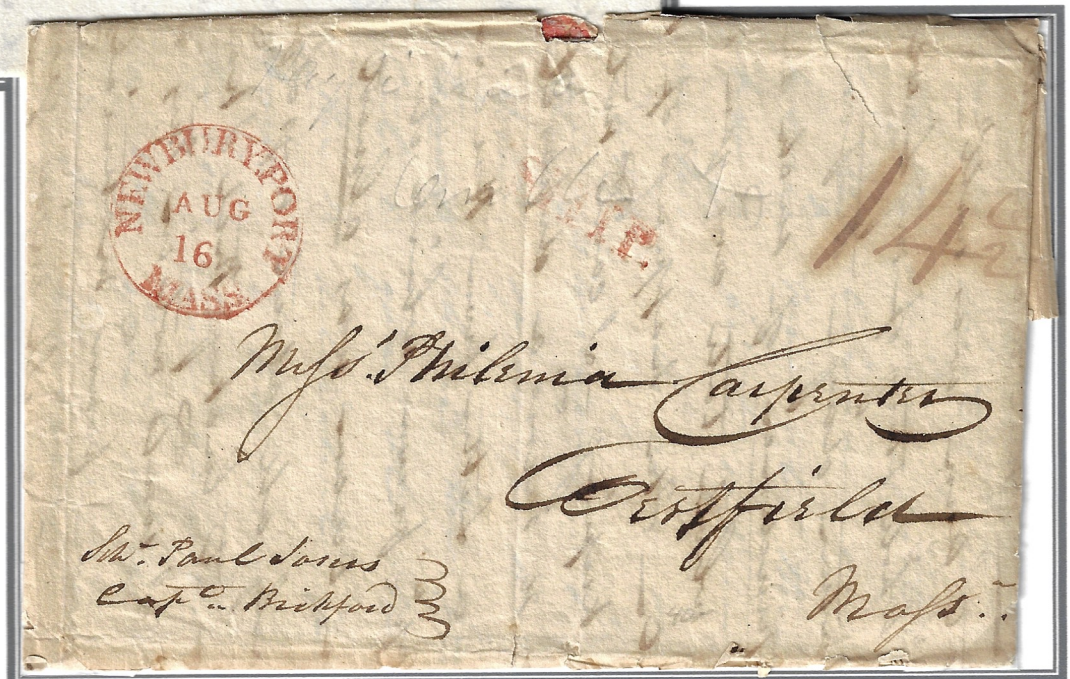 NEWBURYPORT
AUG
16
MASS
SHIP.
14
Miss Philenia Carpenter
Westfield
Mass
Schr. Paul Jones
Capt. Bickford